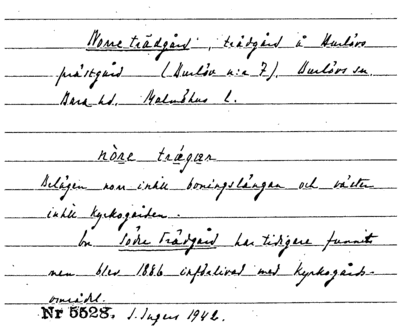 Norre trädgård, trädgård å Burlövs
prästgård (Burlöv n:o 7), Burlövs sn.
Bara hd. Malmöhus l.
nòre trægær
Belägen norr intill boningslängan och väster
intill kyrkogården.
En Södre Trädgård har tidigare funnits
men blev 1886 införlivad med kyrkogårds-
området.
Nr 5528. I. Ingers 1942.